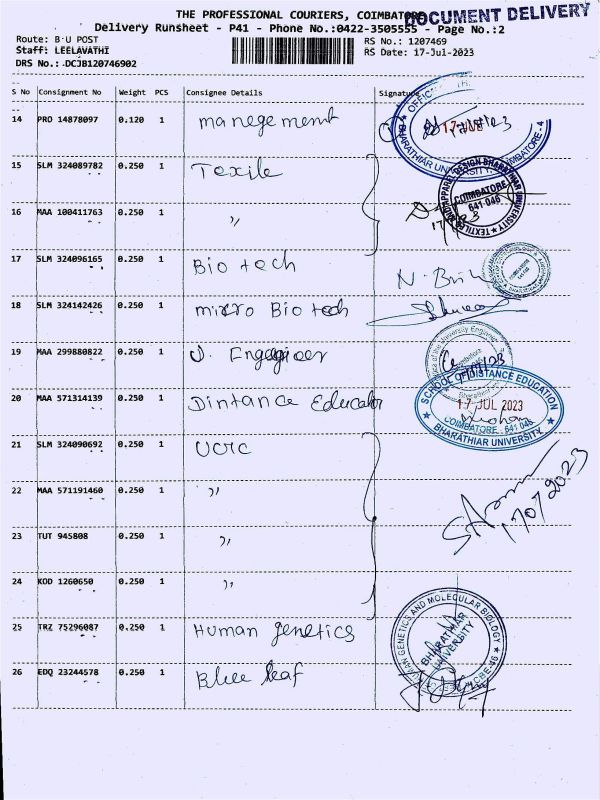 THE PROFESSIONAL COURIERS, COIMBATORE
DOCUMENT DELIVERY
Delivery Runsheet - P41 - Phone No.:0422-3505555 - Page No.:2
Route: B-U POST
RS No.: 1207469
Staff: LEELAVATHI
RS Date: 17-Jul-2023
DRS No.: DCJB120746902
S No Consignment No Weight PCS Consignee Details Signature
14 PRO 14878097 0.120 1 manegement
BHARATHIAR UNIVERSITY, COIMBATORE - 4
17 JUL
15 SLM 324089782 0.250 1 Texile
TEXTILES AND APPAREL DESIGN BHARATHIAR UNIVERSITY
COIMBATORE
641 046
16 MAA 100411763 0.250 1 ,,
17 SLM 324096165 0.250 1 Bio tech
18 SLM 324142426 0.250 1 micro Bio tech
19 MAA 299880822 0.250 1 U. Engegieer
20 MAA 571314139 0.250 1 Dintance Educator
SCHOOL OF DISTANCE EDUCATION
17 JUL 2023
COIMBATORE - 641 046
BHARATHIAR UNIVERSITY
21 SLM 324090692 0.250 1 UCIC
22 MAA 571191460 0.250 1 ,,
17072023
23 TUT 945808 0.250 1 ,,
24 KOD 1260650 0.250 1 ,,
25 TRZ 75296087 0.250 1 Human genetics
HUMAN GENETICS AND MOLECULAR BIOLOGY
BHARATHIAR
UNIVERSITY
CBE-46
26 EDQ 23244578 0.250 1 Blue leaf